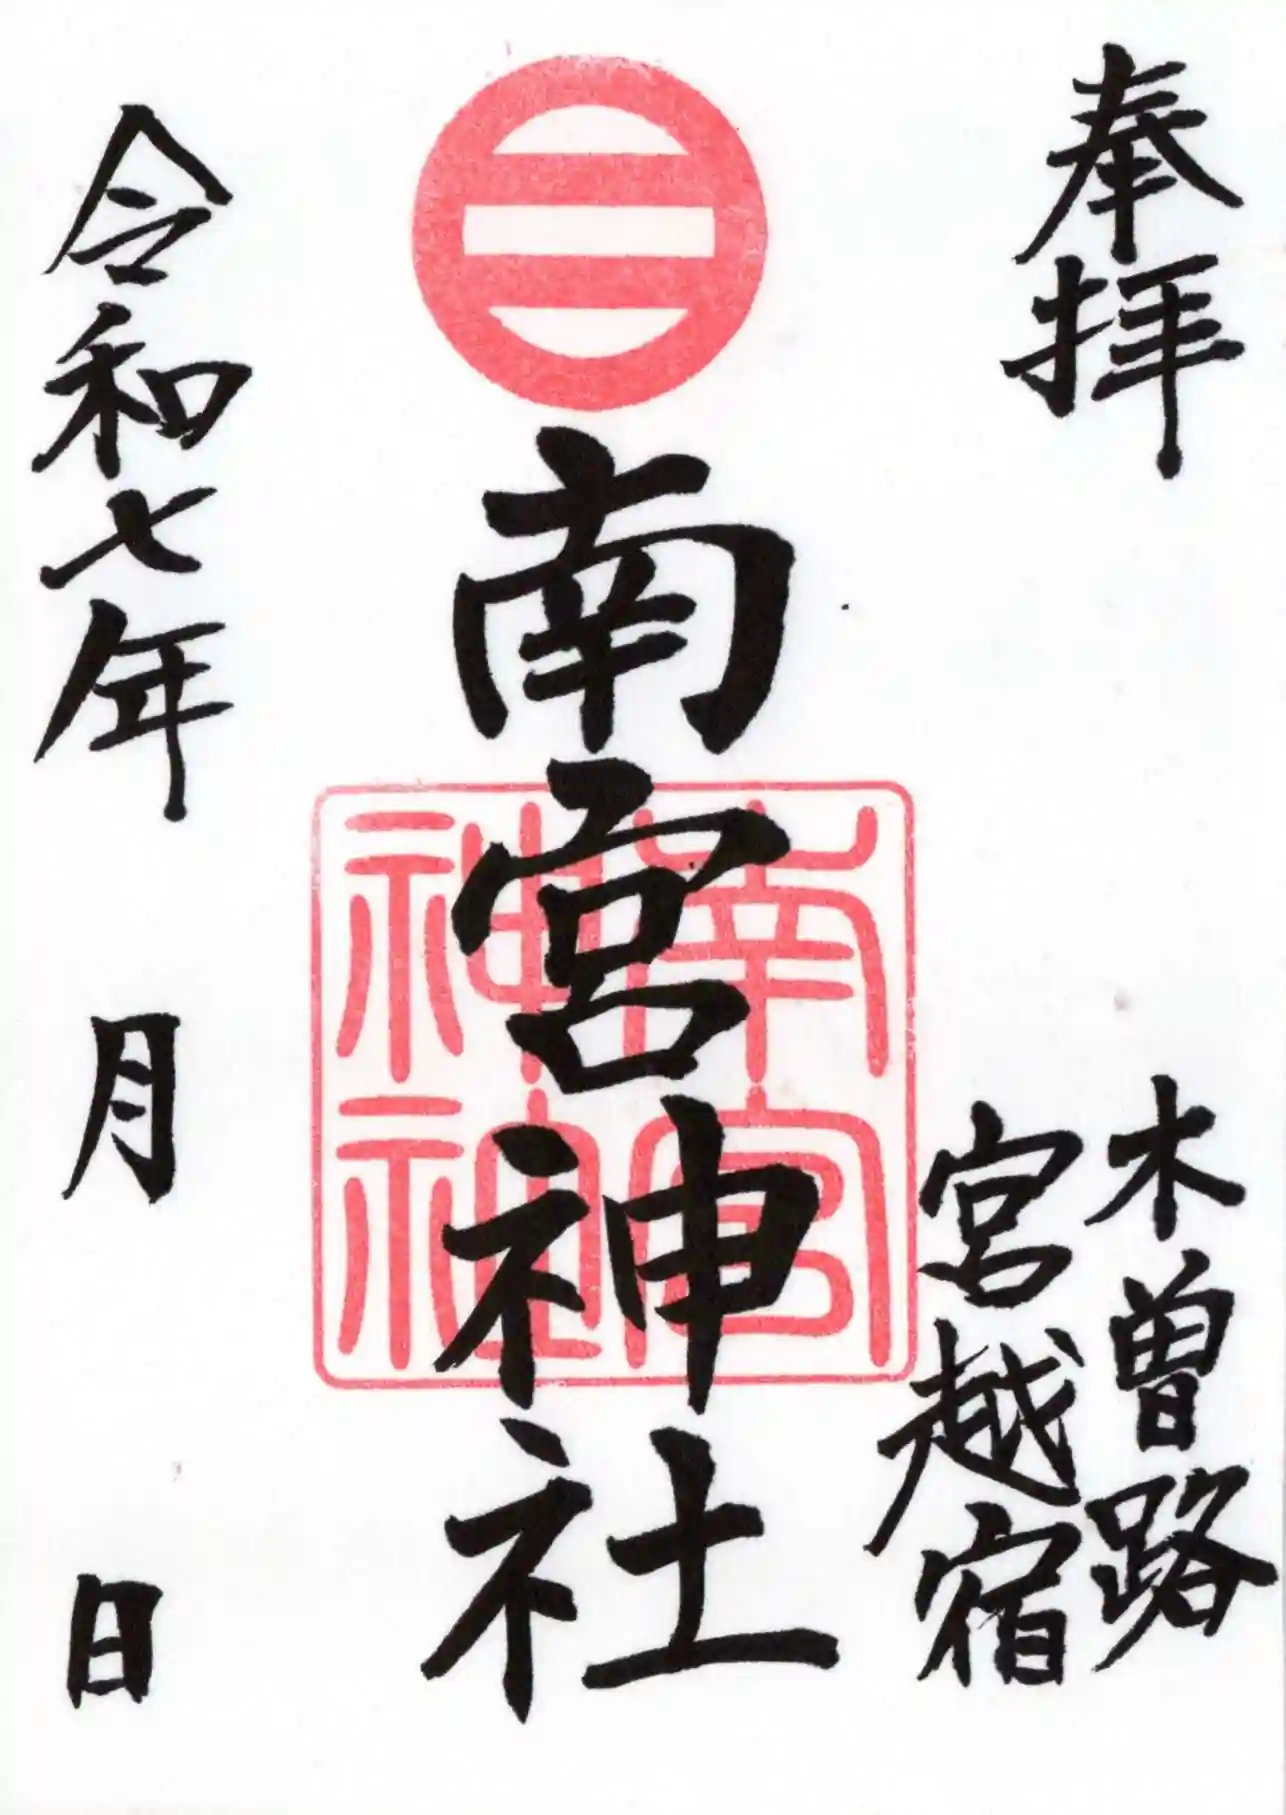 奉拝
木曽路
宮越宿
南宮神社
南宮
神社
令和七年 月 日